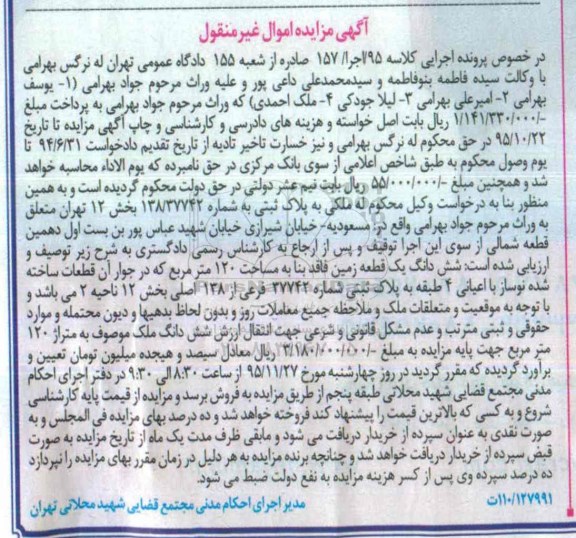 آگهی مزایده اموال غیرمنقول
در خصوص پرونده اجرایی کلاسه ۹۵/اجرا/ ۱۵۷ صادره از شعبه ۱۵۵ دادگاه عمومی تهران له نرگس بهرامی
با وکالت سیده فاطمه بنوفاطمه و سیدمحمدعلی داعی پور و علیه وراث مرحوم جواد بهرامی (۱- یوسف
بهرامی ۲- امیرعلی بهرامی ۳- لیلا جودکی ۴- ملک احمدی) که وراث مرحوم جواد بهرامی به پرداخت مبلغ
-/۱/۱۴۱/۳۳۰/۰۰۰ ریال بابت اصل خواسته و هزینه های دادرسی و کارشناسی و چاپ آگهی مزایده تا تاریخ
۹۵/۱۰/۲۲ در حق محکوم له نرگس بهرامی و نیز خسارت تاخیر تادیه از تاریخ تقدیم دادخواست ۹۴/۶/۳۱ تا
یوم وصول محکوم به طبق شاخص اعلامی از سوی بانک مرکزی در حق نامبرده که یوم الاداء محاسبه خواهد
شد و همچنین مبلغ -/۵۵/۰۰۰/۰۰۰ ریال بابت نیم عشر دولتی در حق دولت محکوم گردیده است و به همین
منظور بنا به درخواست وکیل محکوم له ملکی به پلاک ثبتی به شماره ۱۳۸/۳۷۷۴۲ بخش ۱۲ تهران متعلق
به وراث مرحوم جواد بهرامی واقع در: مسعودیه- خیابان شیرازی خیابان شهید عباس پور بن بست اول دهمین
قطعه شمالی از سوی این اجرا توقیف و پس از ارجاع به کارشناس رسمی دادگستری به شرح زیر توصیف و
ارزیابی شده است: شش دانگ یک قطعه زمین فاقد بنا به مساحت ۱۲۰ متر مربع که در جوار آن قطعات ساخته
شده نوساز با اعیانی ۴ طبقه به پلاک ثبتی شماره ۳۷۷۴۲ فرعی از ۱۳۸ اصلی بخش ۱۲ ناحیه ۲ می باشد و
با توجه به موقعیت و متعلقات ملک و ملاحظه جمیع معاملات روز و بدون لحاظ بدهیها و دیون محتمله و موارد
حقوقی و ثبتی مترتب و عدم مشکل قانونی و شرعی جهت انتقال ارزش شش دانگ ملک موصوف به متراژ ۱۲۰
متر مربع جهت پایه مزایده به مبلغ ریال معادل سیصد و هیجده میلیون تومان تعیین و
برآورد گردیده که مقرر گردید در روز چهارشنبه مورخ ۹۵/۱۱/۲۷ از ساعت ۸:۳۰ الی ۹:۳۰ در دفتر اجرای احکام
مدنی مجتمع قضایی شهید محلاتی طبقه پنجم از طریق مزایده به فروش برسد و مزایده از قیمت پایه کارشناسی
شروع و به کسی که بالاترین قیمت را پیشنهاد کند فروخته خواهد شد و ده درصد بهای مزایده فی المجلس و به
صورت نقدی به عنوان سپرده از خریدار دریافت می شود و مابقی ظرف مدت یک ماه از تاریخ مزایده به صورت
قبض سپرده از خریدار دریافت خواهد شد و چنانچه برنده مزایده به هر دلیل در زمان مقرر بهای مزایده را نپردازد
ده درصد سپرده وی پس از کسر هزینه مزایده به نفع دولت ضبط می شود.
۱۱۰/۱۲۷۹۹۱ت
مدیر اجرای احکام مدنی مجتمع قضایی شهید محلاتی تهران